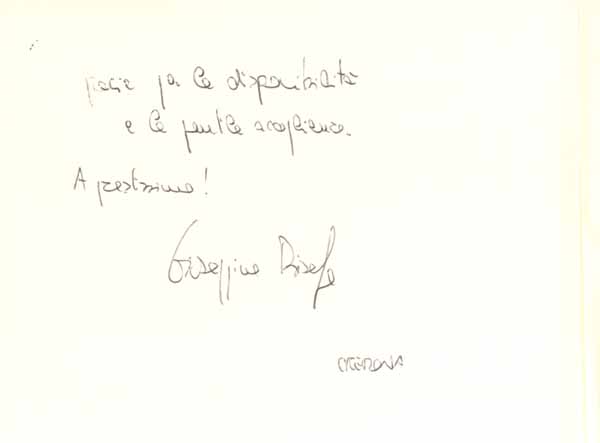 grazie per la disponibilità
e la gentile accoglienza.
A prestissimo!
Giuseppina